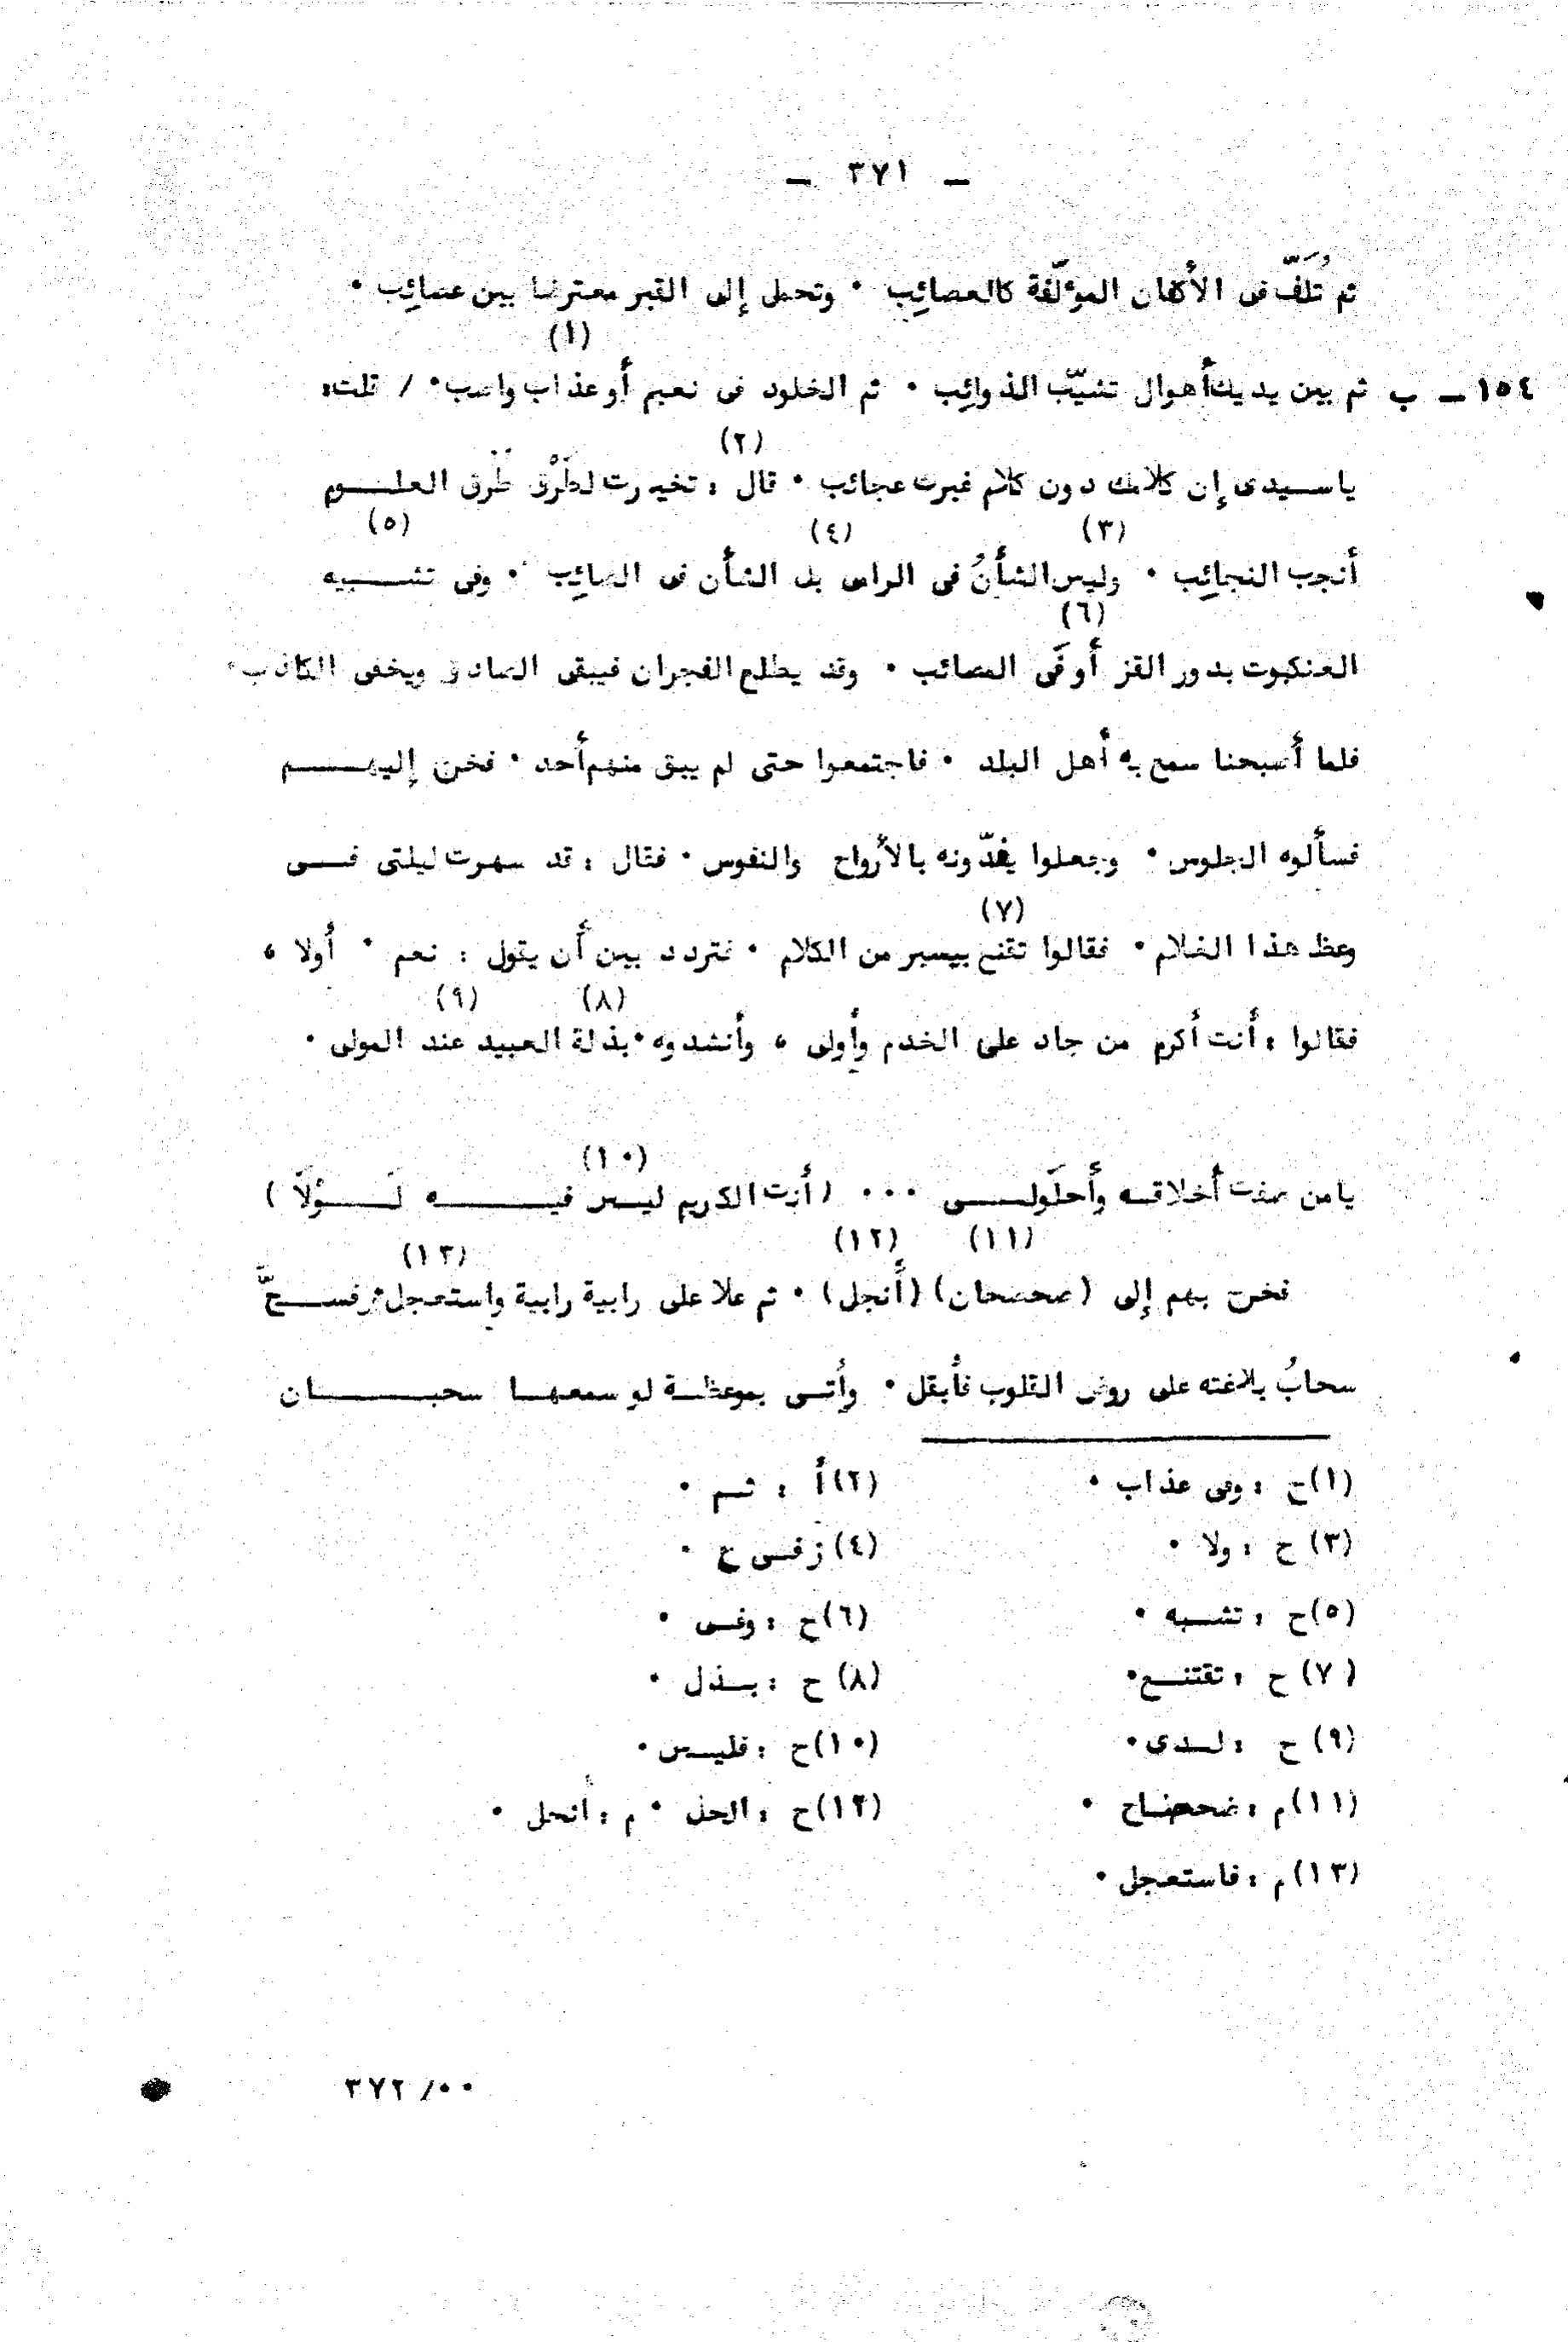 ـ ٣٧١ ـ
ثم تُلَفّ فى الأكفان المؤلّفة كالعصائِب • وتحمل إلى القبر معترضا بين عصائِب •
(١)
١٥٤ ـ ب ثم بين يديك أهوال تشيّب الذوائِب • ثم الخلود فى نعيم أو عذاب واصب • / قلت:
(٢)
ياسـيدى إن كلامك دون كلام غيرك عجائب • قال : تخيرت لطَرْق طُرق العلـــوم
(٣) (٤) (٥)
أنجب النجائِب • وليس الشأنُ فى الراس بل الشأن فى الصائِب • وفى تشـــبيه
(٦)
العنكبوت بدور القز أوفَى المصائب • وقد يطلع الفجران فيبقى الصادق ويخفى الكاذب •
فلما أصبحنا سمع به أهل البلد • فاجتمعوا حتى لم يبق منهم أحد • فخرج إليهـــم
فسألوه الجلوس • وجعلوا يفدّونه بالأرواح والنفوس • فقال : قد سهرت ليلتى فـــى
(٧)
وعظ هذا الغلام • فقالوا تقنع بيسير من الكلام • فتردد بين أن يقول : نعم • أولا ،
(٨) (٩)
فقالوا : أنت أكرم من جاد على الخدم وأولى ، وأنشدوه • بذلة العبيد عند المولى •
(١٠)
يامن صفت أخلاقـه وأحلَولـــى ••• (أنت الكريم ليـس فيـــــه لَـــوْلاَ )
(١١) (١٢) (١٣)
فخرج بهم إلى (صحصحان) (أَنجل) • ثم علا على رابية رابية واستعجل • فســحَّ
سحابُ بلاغته على روض القلوب فأبقل • وأتـى بموعظـة لو سمعهـا سحبـــــان
(١)ح : وفى عذاب •
(٢)أ : ثـم •
(٣) ح : ولا •
(٤) زفـى ع •
(٥)ح : تشـبه •
(٦)ح : وفـى •
(٧) ح : تقتنـع •
(٨) ح : بـذل •
(٩) ح : لـدى •
(١٠)ح : فليـس •
(١١)م : ضحضـاح •
(١٢)ح : الحل • م : أنحل •
(١٣)م : فاستعجل •
٣٧٢ /••